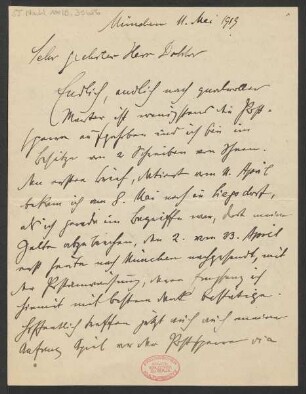 München 11. Mai 1919
Sehr geehrter Herr Doktor
Endlich, endlich nach qualvollem
ist wenigstens die Post-
sperre aufgehoben und ich bin im
Besitze von 2 Schreiben von Ihnen.
Den ersten Brief, datiert vom 11. April
bekam ich am 8. Mai noch in
als ich gerade im Begriffe war, dort meine
Zelte abzubrechen, den 2. vom 23. April
erst heute nach München nachgesandt, mit
der Postanweisung, deren Empfang ich
hiermit mit bestem Dank bestätige.
Hoffentlich treffen jetzt auch auch meine
Anfang der Postsperre via